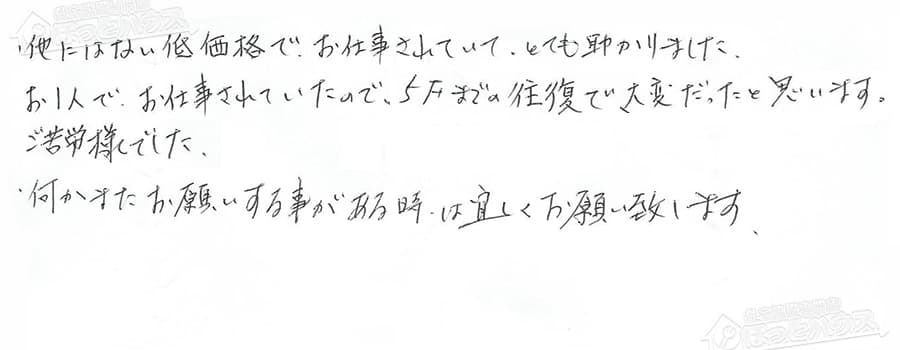 ・他にはない低価格で、お仕事されていて、とても助かりました、
お1人で、お仕事されていたので、5Fまでの往復で大変だったと思います。
ご苦労様でした、
・何かまたお願いする事がある時は宜しくお願い致します、
ほっとハウス